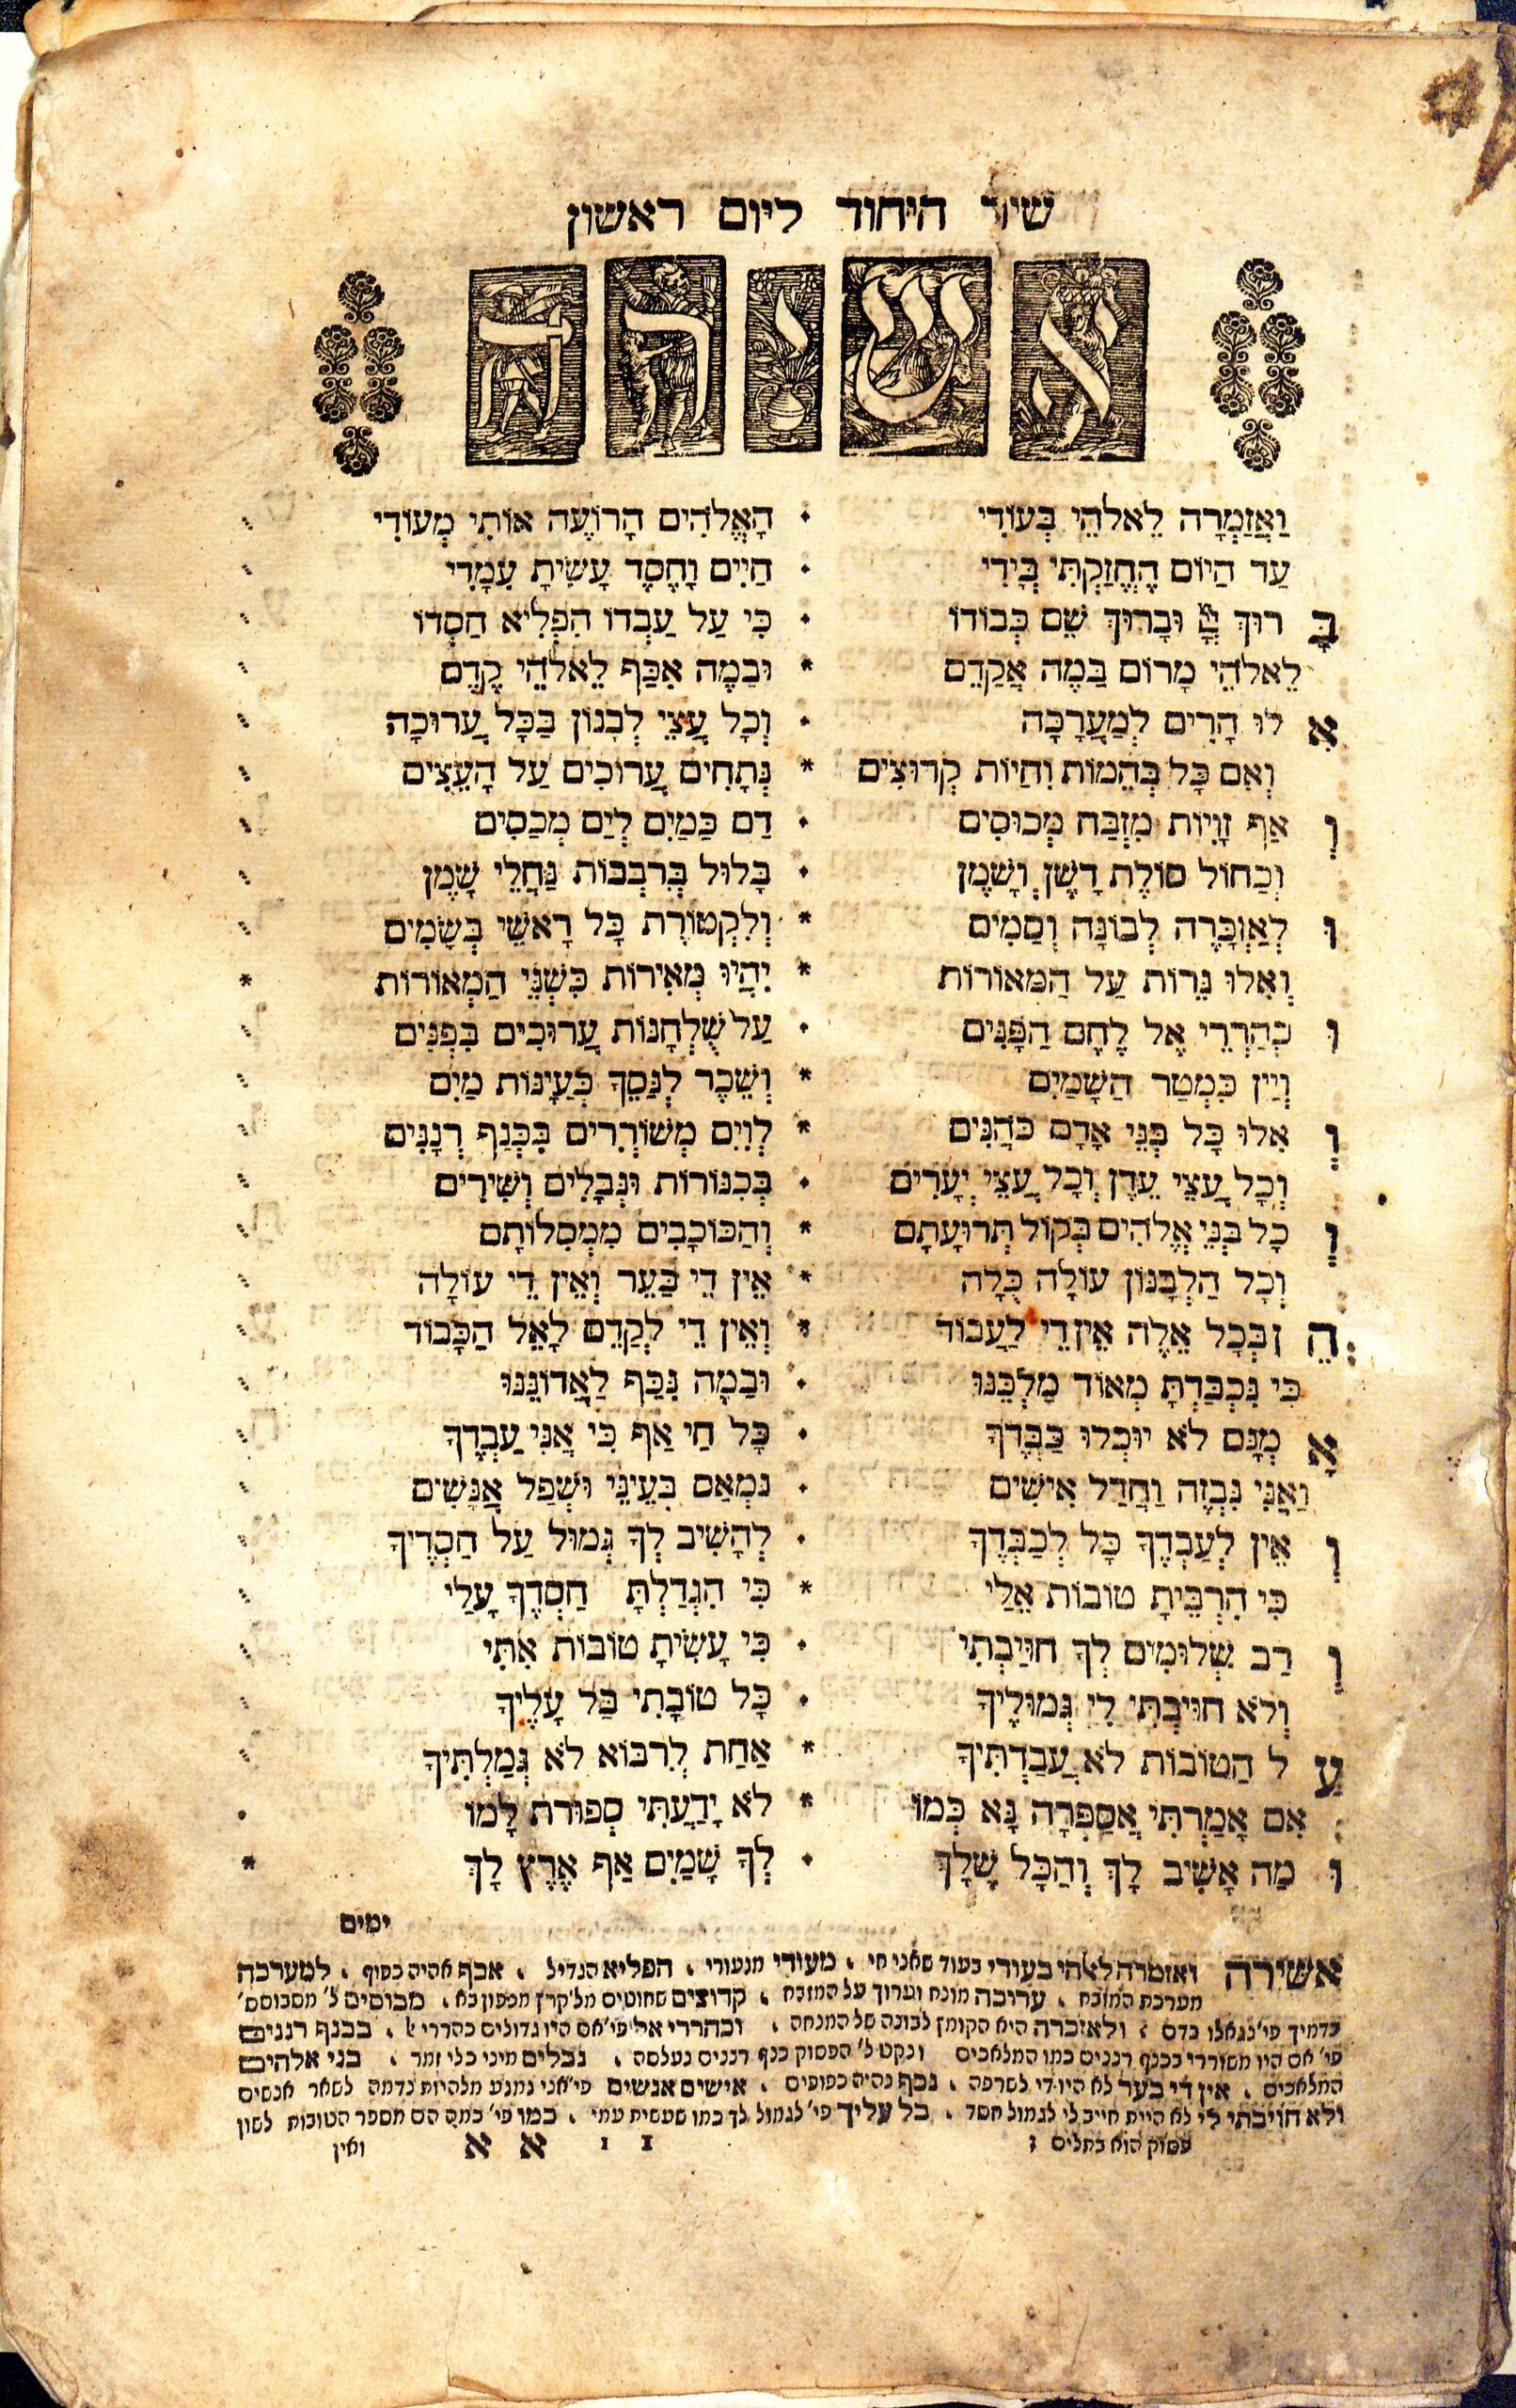 שיר היחוד ליום ראשון
אשירה
וַאֲזַמְּרָה לֵאלֹהַי בְּעוֹדִי · הָאֱלֹהִים הָרוֹעֶה אוֹתִי מְעוֹדִי
עַד הַיוֹם הֶחֱזַקְתִּי בְּיָדִי · חַיִּים וָחֶסֶד עָשִׂיתָ עִמָּדִי
בָּרוּךְ יְיָ וּבָרוּךְ שֵׁם כְּבוֹדוֹ · כִּי עַל עַבְדּוֹ הִפְלִיא חַסְדּוֹ
לֵאלֹהֵי מָרוֹם בַּמֶּה אֲקַדֵּם * וּבַמֶּה אִכַּף לֵאלֹהֵי קֶדֶם
אִלּוּ הָרִים לְמַעֲרָכָה · וְכָל עֲצֵי לְבָנוֹן בַּכָּל עֲרוּכָה
וְאִם כָּל בְּהֵמוֹת וְחַיּוֹת קְרוּצִים * נְתָחִים עֲרוּכִים עַל הָעֵצִים
וְאַף זָוִיּוֹת מִזְבֵּחַ מְכוּסִים · דַם כַּמַּיִם לְיַם מְכַסִּים
וְכַחוֹל סוֹלֶת דָשֵׁן וְשָׁמֶן · בָּלוּל בְּרִבְבוֹת נַחֲלֵי שָׁמֶן
וּלְאַזְכָּרָה לְבוֹנָה וְסַמִּים * וְלִקְטוֹרֶת כָּל רָאשֵׁי בְשָׂמִים
וְאִלּוּ נֵרוֹת עַל הַמְּאוֹרוֹת * יִהְיוּ מְאִירוֹת כִּשְׁנֵי הַמְּאוֹרוֹת *
וּכְהַרְרֵי אֵל לֶחֶם הַפָּנִים · עַל שֻׁלְחָנוֹת עֲרוּכִים בִּפְנִים
וְיַיִן כִּמְטַר הַשָּׁמַיִם * וְשֵׁכָר לְנַסֵּךְ כְּעֵינוֹת מַיִם
וְאִלּוּ כָּל בְּנֵי אָדָם כֹּהֲנִים * לְוִיִם מְשׁוֹרְרִים כִּכְנַף רְנָנִים
וְכָל עֲצֵי עֵדֶן וְכָל עֲצֵי יְעָרִים · בְּכִנּוֹרוֹת וּנְבָלִים וְשִׁירִים
וְכָל בְּנֵי אֱלֹהִים בְּקוֹל תְּרוּעָתָם * וְהַכּוֹכָבִים מִמְּסִלּוֹתָם
וְכָל הַלְּבָנוֹן עוֹלָה כֻּלָּה * אֵין דֵי בַּעֵר וְאֵין דֵי עוֹלָה
הֵן בְּכָל אֵלֶּה אֵין דֵי לַעֲבוֹד * וְאֵין דֵי לְקַדֵּם לְאֵל הַכָּבוֹד
כִּי נִכְבַּדְתָּ מְאוֹד מַלְכֵּנוּ · וּבַמֶּה נִכַּף לַאֲדוֹנֵנוּ
אָמְנָם לֹא יוּכְלוּ כַבֶּדְךָ · כָּל חַי אַף כִּי אֲנִי עַבְדֶּךָ
וַאֲנִי נִבְזֶה וַחֲדַל אִישִׁים · נִמְאָס בְּעֵינַי וּשְׁפַל אֲנָשִׁים
וְאֵין לְעַבְדְּךָ כָּל לְכַבְּדֶךָ · לְהָשִׁיב לְךָ גְּמוּל עַל חַסְדֶּיךָ
כִּי הִרְבֵּיתָ טוֹבוֹת אֵלַי * כִּי הִגְדַּלְתָּ חַסְדְּךָ עָלַי
וְרַב שִׁלּוּמִים לְךָ חוּיַבְתִּי · כִּי עָשִׂיתָ טוֹבוֹת אִתִּי
וְלֹא חוּיַבְתִּי לִי גְּמוּלֶיךָ · כָּל טוֹבָתִי בַּל עָלֶיךָ
עַל הַטּוֹבוֹת לֹא עֲבַדְתִּיךָ * אַחַת לְרִבּוֹא לֹא גְּמַלְתִּיךָ
אִם אָמַרְתִּי אֲסַפְּרָה נָּא כְּמוֹ * לֹא יָדַעְתִּי סְפוֹרֹת לָמוֹ
וּמַה אָשִׁיב לָךְ וְהַכָּל שֶׁלָּךְ · לְךָ שָׁמַיִם אַף אֶרֶץ לָךְ *
ימים
אשירה ואזמרה לאלהי בעודי בעוד שאני חי . מעודי מנעורי . הפליא הגדיל . אכף אהיה כפוף . למערכה
מערכת המזבח . ערוכה מונח וערוך על המזבח . קרוצים שחוטים מל' קרץ מצפון בא . מכוסים ל' מסכוסס'
בדמיך פי' נגאלו בדם : ולאזכרה היא הקומץ לבונה של המנחה . וכהררי אל פי' אם היו גדולים כהררי אל . בכנף רננים
פי' אם היו משוררי' בכנף רננים כמו המלאכים ונקט ל' הפסוק כנף רננים נעלסה . נבלים מיני כלי זמר . בני אלהים
המלאכים . אין די בער לא היו די לשרפה . נכף נהיה כפופים . אישים אנשים פי' אני נמנע מלהיות נדמה לשאר אנשים
ולא חויבתי לי לא היית חייב לי לגמול חסד . בל עליך פי' לגמול לך כמו שעשית עמי . כמו פי' כמה הם מספר הטובות לשון
פסוק הוא בתלים : א א ואין